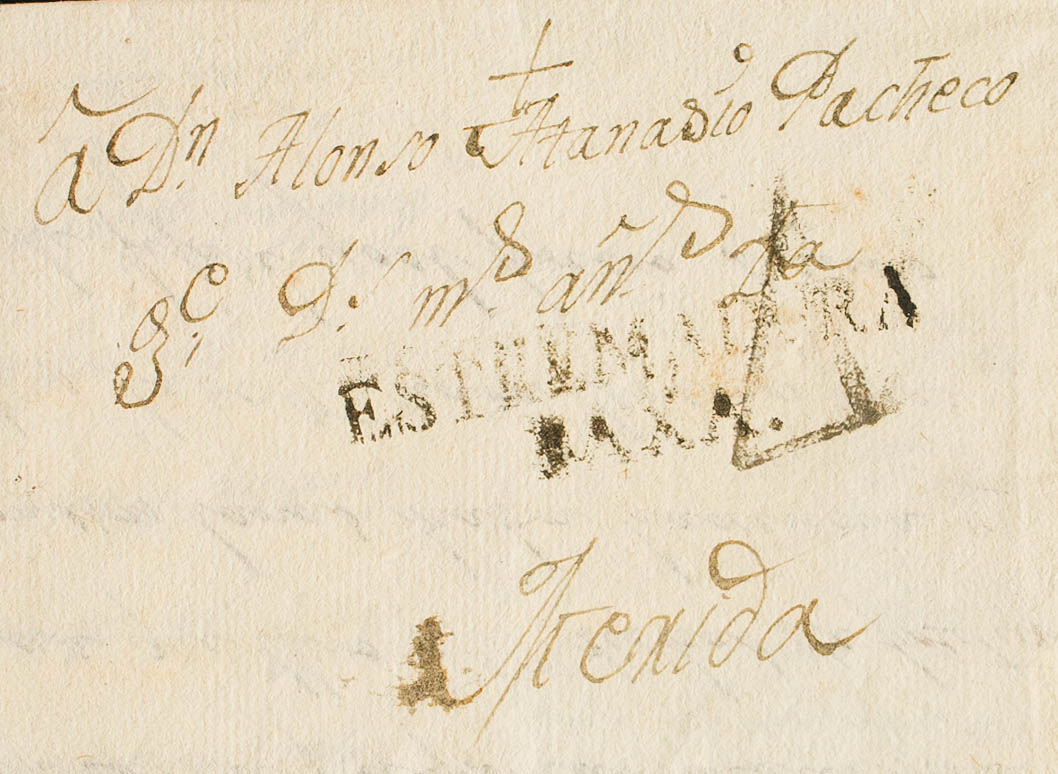 +
â Dn. Alonso Atanasio Pacheco
gᵉ. Dˢ. mˢ. anˢ.
ESTREMADURA
BAXA.
Merida